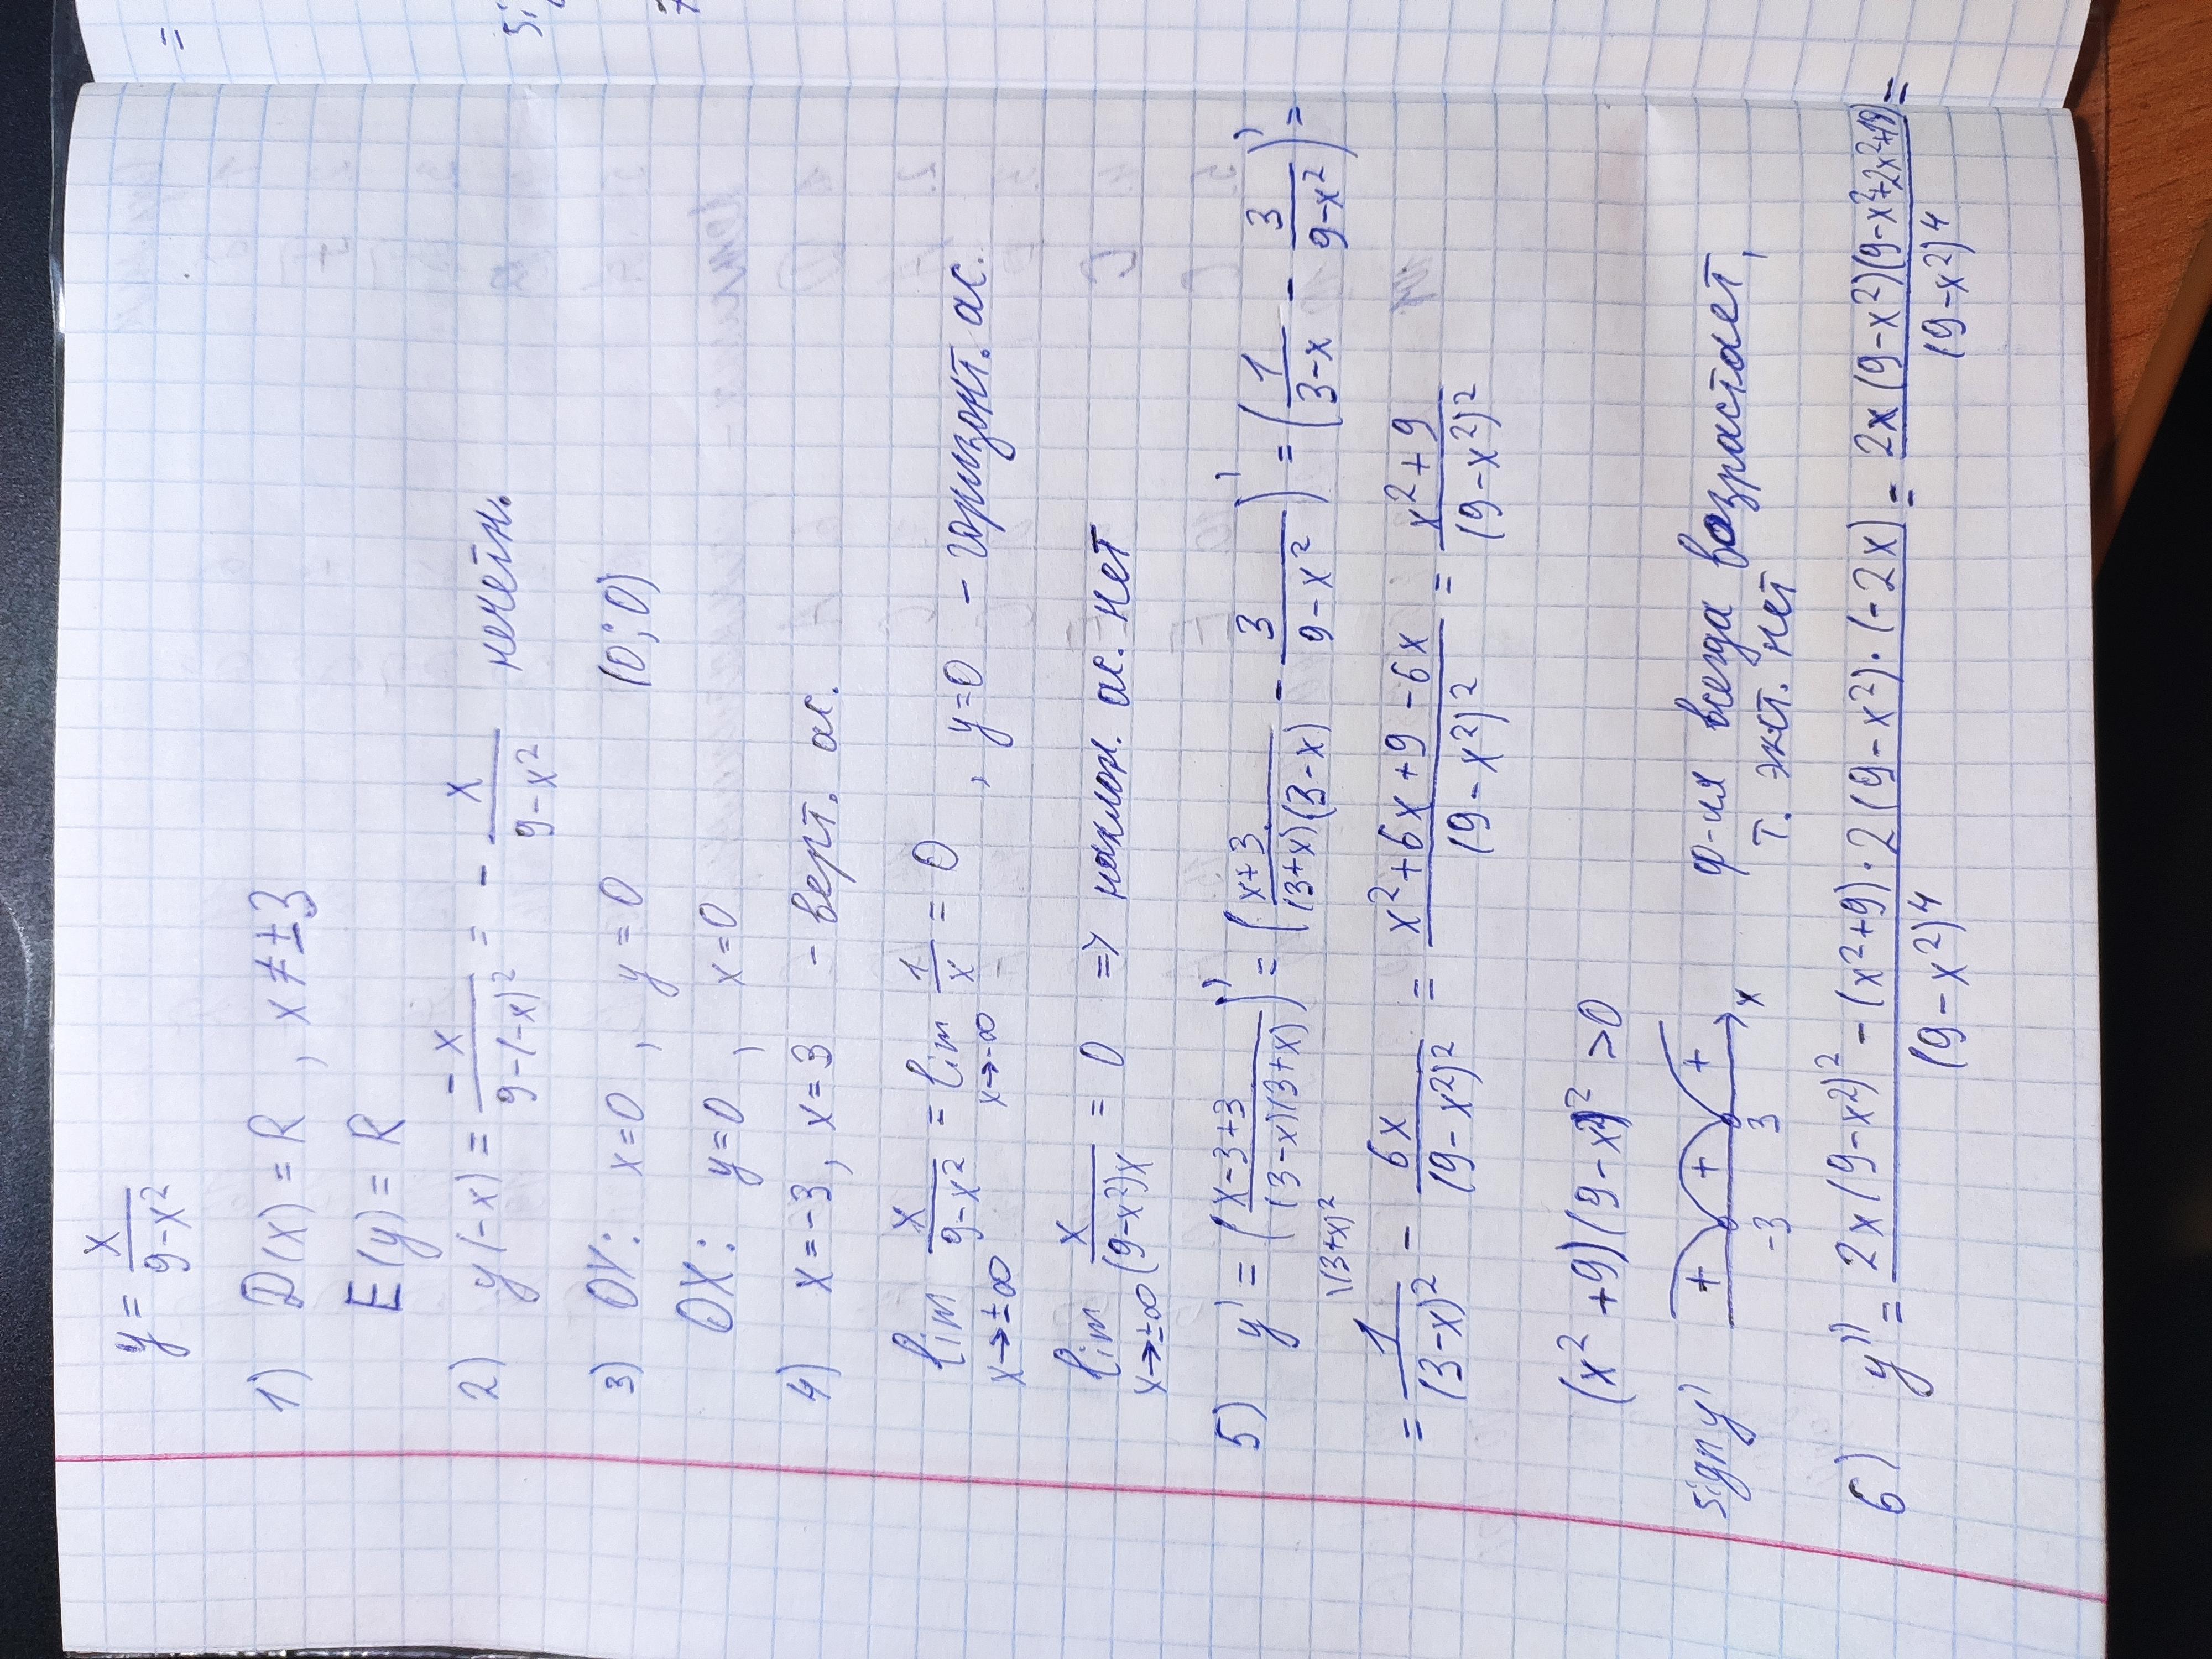 y = x/(9-x²)
1) D(x) = R, x ≠ ±3
E(y) = R
2) y(-x) = -x/(9-(-x)²) = - x/(9-x²) нечетн.
3) OY: x=0, y=0 (0;0)
OX: y=0, x=0
4) x=-3, x=3 - верт. ас.
lim x→±∞ x/(9-x²) = lim x→-∞ 1/-x = 0, y=0 - горизонт. ас.
lim x→±∞ x/((9-x²)x) = 0 => наклон. ас. нет
5) y' = ((x-3+3)/((3-x)(3+x)))' = ((x+3)/((3+x)(3-x)) - 3/(9-x²))' = (1/(3-x) - 3/(9-x²))' =
= 1/(3-x)² \(3+x)² - 6x/(9-x²)² = (x²+6x+9-6x)/(9-x²)² = (x²+9)/(9-x²)²
(x²+9)(9-x²)² >0
sign y' + -3 + 3 + x ф-ия всегда возрастает,
т. экст. нет
6) y'' = (2x(9-x²)² - (x²+9)·2(9-x²)·(-2x))/(9-x²)⁴ = (2x(9-x²)(9-x²+2x²+18))/(9-x²)⁴ =
=